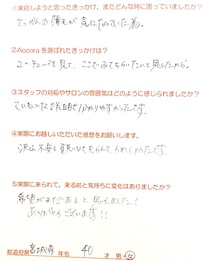 ①来店しようと思ったきっかけ、またどんな時に困っていましたか?
てっぺんの薄毛が気になっていた為。
②Aozoraを選ばれたきっかけは?
ユーチューブを見て、ここでみてもらいたいと思ったから。
③スタッフの対応やサロンの雰囲気はどのように感じられましたか?
ていねいな説明で分かりやすかったです。
④実際にお越しいただいた感想をお願いします。
沢山不安を聞いてもらえてうれしかったです。
⑤実際に来られて、来る前と気持ちに変化はありましたか?
希望がまだあると思えました!
ありがとうございます!!
都道府県 宮城県 年令 40 才 男・女